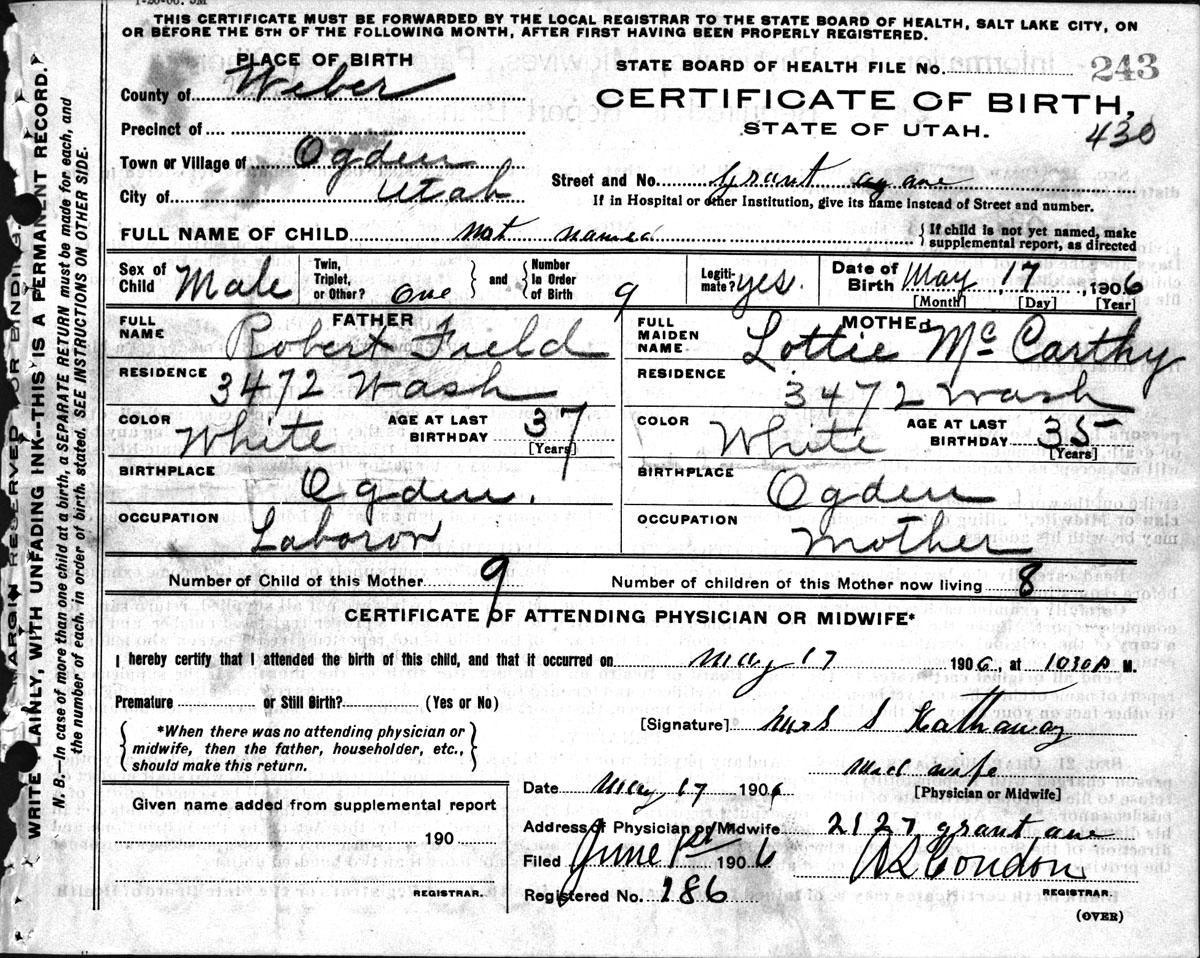 THIS CERTIFICATE MUST BE FORWARDED BY THE LOCAL REGISTRAR TO THE STATE BOARD OF HEALTH, SALT LAKE CITY, ON
OR BEFORE THE 5TH OF THE FOLLOWING MONTH, AFTER FIRST HAVING BEEN PROPERLY REGISTERED.
PLACE OF BIRTH
STATE BOARD OF HEALTH FILE No. 243
County of Weber
CERTIFICATE OF BIRTH,
STATE OF UTAH.
430
Precinct of
Town or Village of Ogden
City of Utah
Street and No. Grant
If in Hospital or other Institution, give its name instead of Street and number.
FULL NAME OF CHILD not named
{ If child is not yet named, make
supplemental report, as directed
Sex of Child Male
Twin, Triplet, or Other? One } and { Number In Order of Birth 9
Legitimate? yes.
Date of Birth May 17, 1906
[Month] [Day] [Year]
FATHER
FULL NAME Robert Field
RESIDENCE 3472 Wash
COLOR White
AGE AT LAST BIRTHDAY 37
[Years]
BIRTHPLACE Ogden.
OCCUPATION Laboror
MOTHER
FULL MAIDEN NAME Lottie McCarthy
RESIDENCE 3472 Wash
COLOR White
AGE AT LAST BIRTHDAY 35
[Years]
BIRTHPLACE Ogden
OCCUPATION Mother
Number of Child of this Mother 9
Number of children of this Mother now living 8
CERTIFICATE OF ATTENDING PHYSICIAN OR MIDWIFE*
I hereby certify that I attended the birth of this child, and that it occurred on May 17 1906, at 1030 P M.
Premature or Still Birth? (Yes or No)
{ *When there was no attending physician or
midwife, then the father, householder, etc.,
should make this return. }
[Signature] Mrs S Hathaway
[Physician or Midwife]
Date May 17 1906
Address of Physician or Midwife 2127 grant ave
Filed June 1st 1906
A L Condon
REGISTRAR.
Registered No. 286
(OVER)
Given name added from supplemental report
190
REGISTRAR.
MARGIN RESERVED FOR BINDING.
WRITE PLAINLY, WITH UNFADING INK--THIS IS A PERMANENT RECORD.
N. B.—In case of more than one child at a birth, a SEPARATE RETURN must be made for each, and
the number of each, in order of birth, stated. SEE INSTRUCTIONS ON OTHER SIDE.